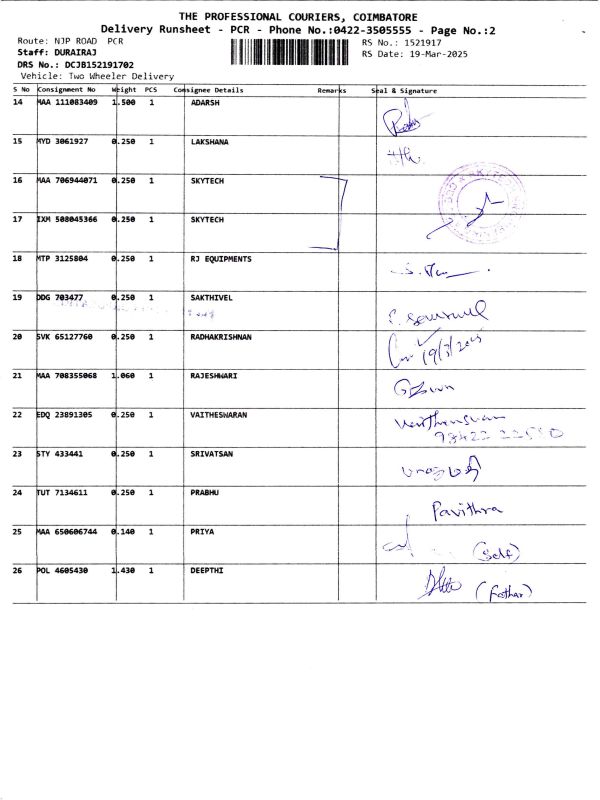 THE PROFESSIONAL COURIERS, COIMBATORE
Delivery Runsheet - PCR - Phone No.:0422-3505555 - Page No.:2
Route: NJP ROAD PCR
RS No.: 1521917
Staff: DURAIRAJ
RS Date: 19-Mar-2025
DRS No.: DCJB152191702
Vehicle: Two Wheeler Delivery
S No Consignment No Weight PCS Consignee Details Remarks Seal & Signature
14 MAA 111083409 1.500 1 ADARSH
15 MYD 3061927 0.250 1 LAKSHANA
16 MAA 706944071 0.250 1 SKYTECH
17 IXM 508045366 0.250 1 SKYTECH
18 MTP 3125804 0.250 1 RJ EQUIPMENTS
19 DDG 703477 0.250 1 SAKTHIVEL
20 SVK 65127760 0.250 1 RADHAKRISHNAN 19/3/2025
21 MAA 708355068 1.060 1 RAJESHWARI
22 EDQ 23891305 0.250 1 VAITHESWARAN
23 STY 433441 0.250 1 SRIVATSAN
24 TUT 7134611 0.250 1 PRABHU Pavithra
25 MAA 650606744 0.140 1 PRIYA (Self)
26 POL 4605430 1.430 1 DEEPTHI (Father)